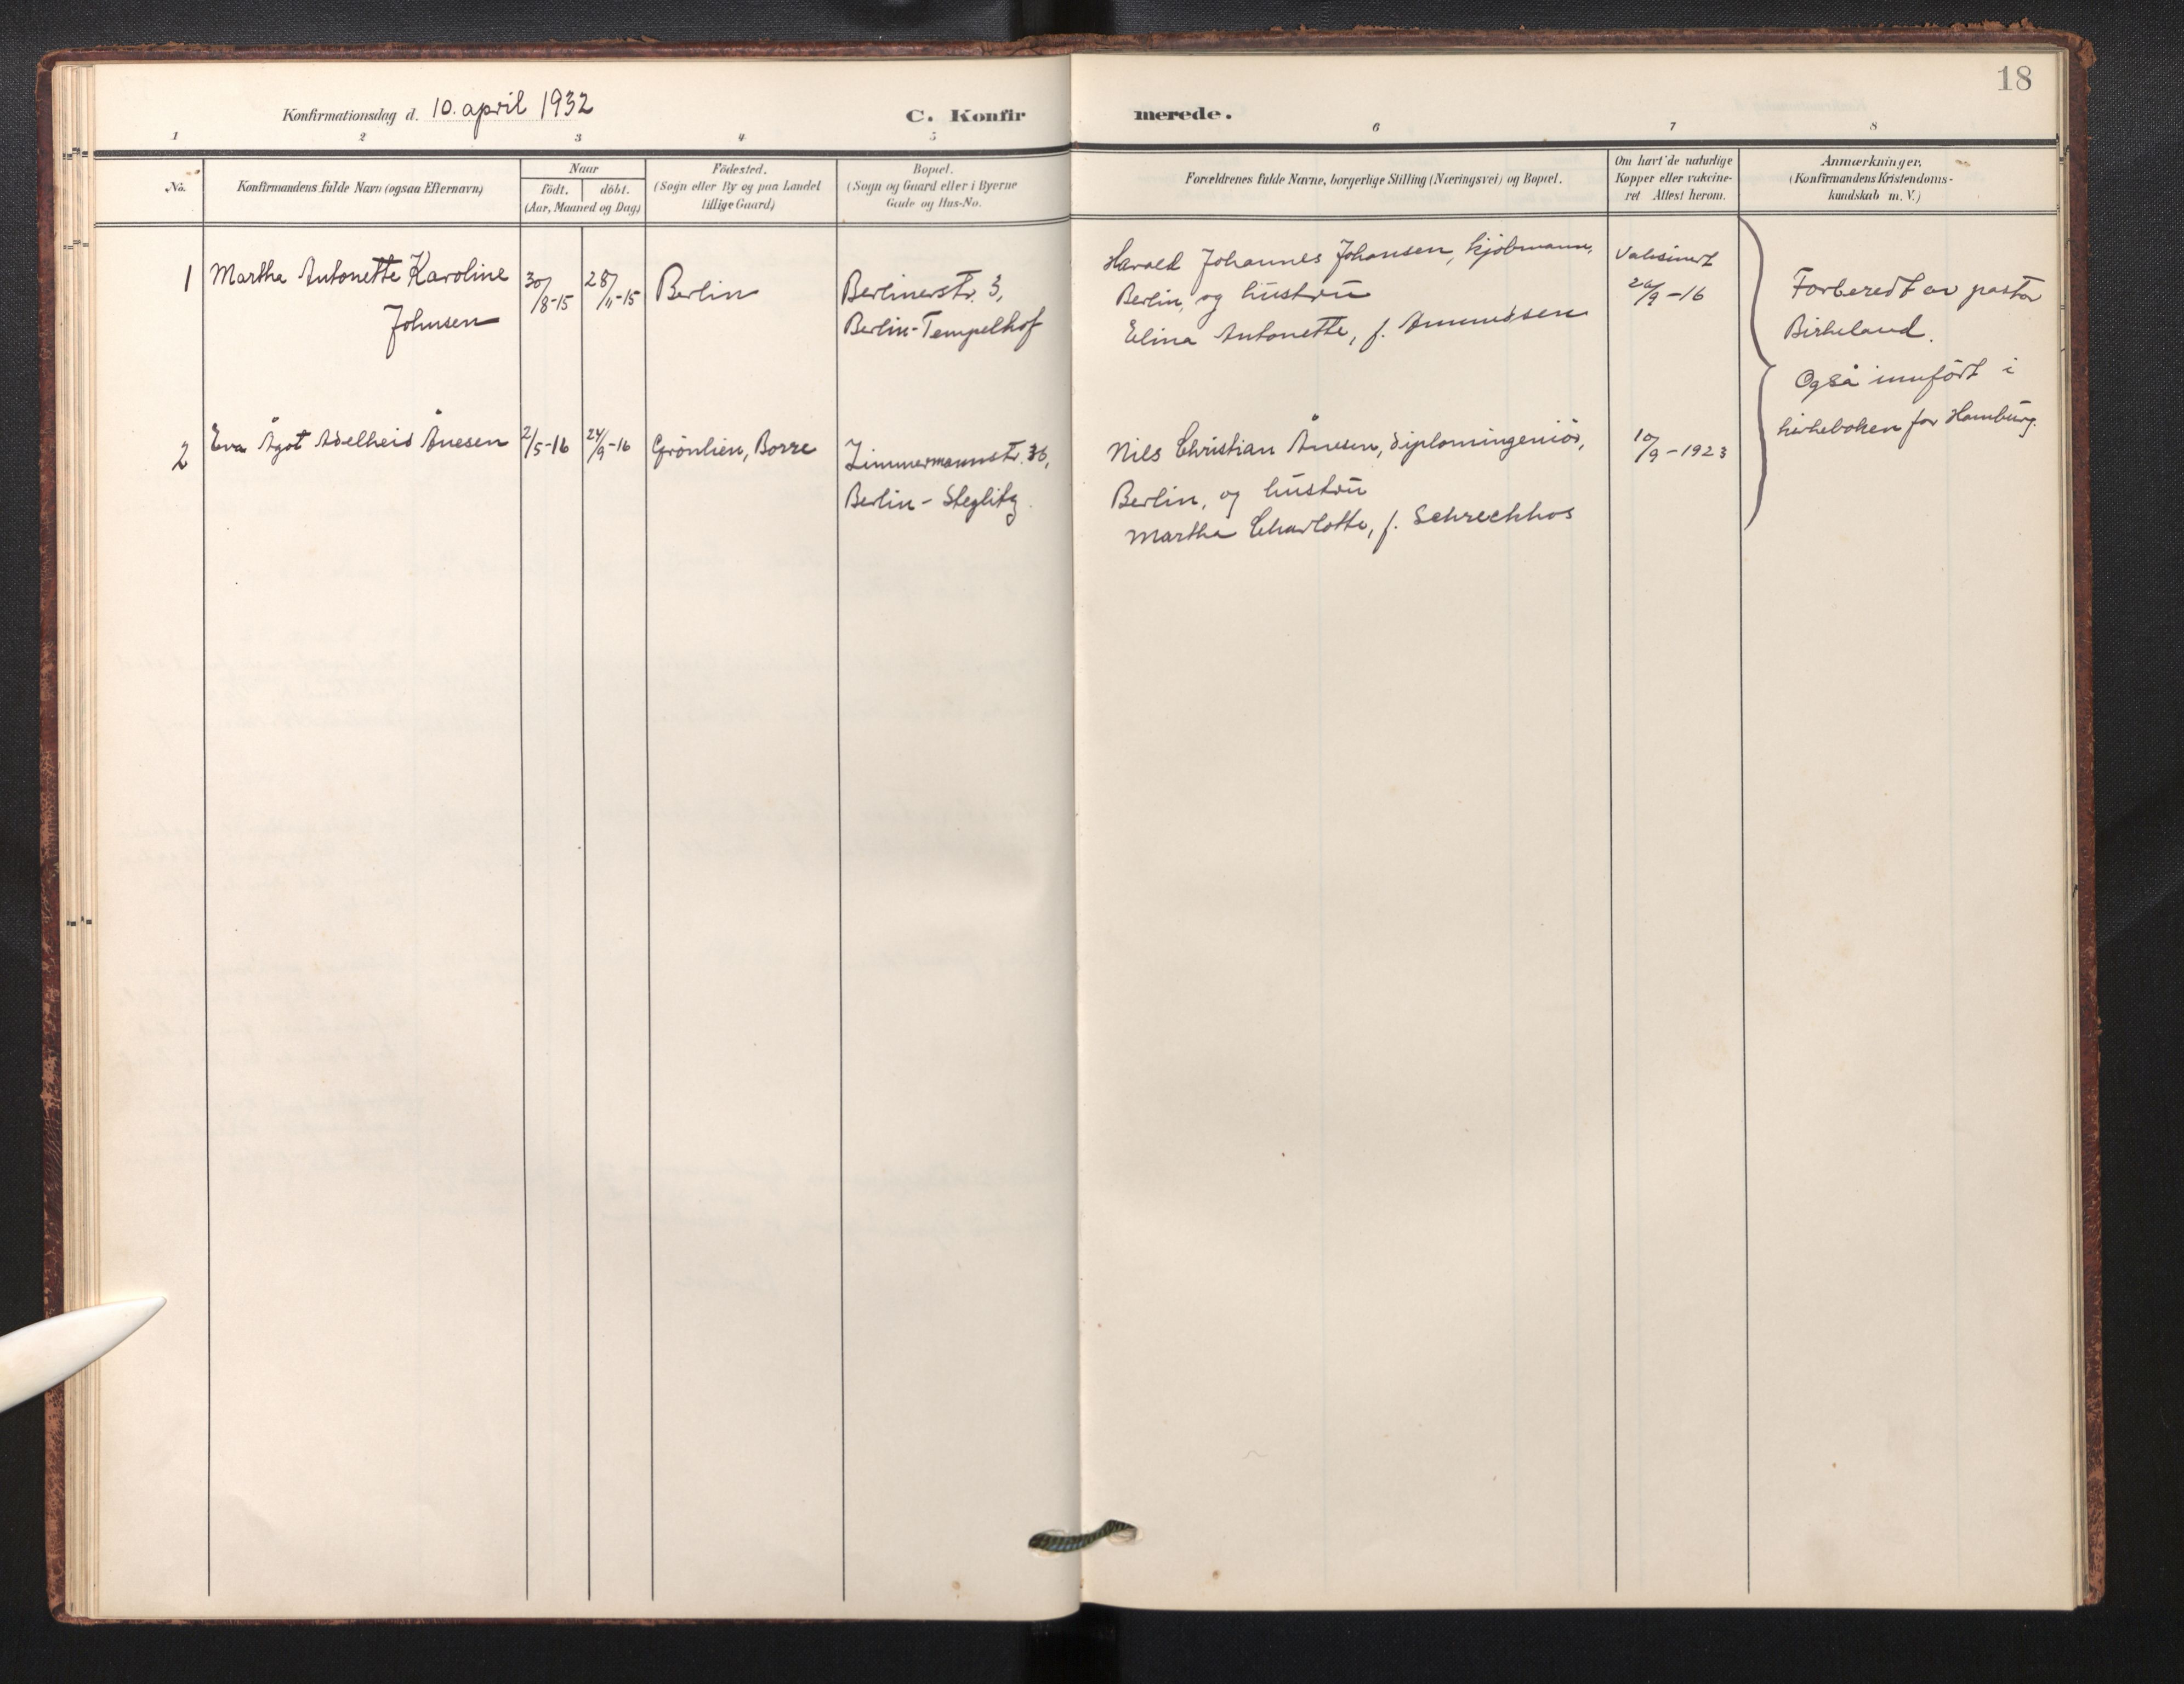 18
Konfirmationsdag d. 10. april 1932
C. Konfirmerede.
1 2 3 4 5 6 7 8
No.
Konfirmandens fulde Navn (ogsaa Efternavn)
Naar
födt. döbt.
(Aar, Maaned og Dag)
Födested.
(Sogn eller By og paa Landet
tillige Gaard)
Bopæl.
(Sogn og Gaard eller i Byerne
Gade og Hus-No.
Forældrenes fulde Navne, borgerlige Stilling (Næringsvei) og Bopæl.
Om havt de naturlige
Kopper eller vakcine-
ret Attest herom.
Anmærkninger.
(Konfirmandens Kristendoms-
kundskab m. V.)
1
Martha Antonette Karoline
Johnsen
30/8-15
28/11-15
Berlin
Berlinerstr. 3,
Berlin-Tempelhof
Harald Johannes Johansen, kjöbmann,
Berlin, og hustru
Elina Antonette, f. Amundsen
Vaksinert
/9-16
Forberedt av pastor
Birkeland.
Også innført i
kirkeboken for Hamburg.
2
Eva Ågot Adelheid Ånesen
2/5-16
24/9-16
Grönlien, Borre
Zimmermannstr. 36,
Berlin-Steglitz.
Nils Christian Ånesen, diplomingeniör,
Berlin, og hustru
Martha Charlotte, f. Schreckhos
10/9-1923